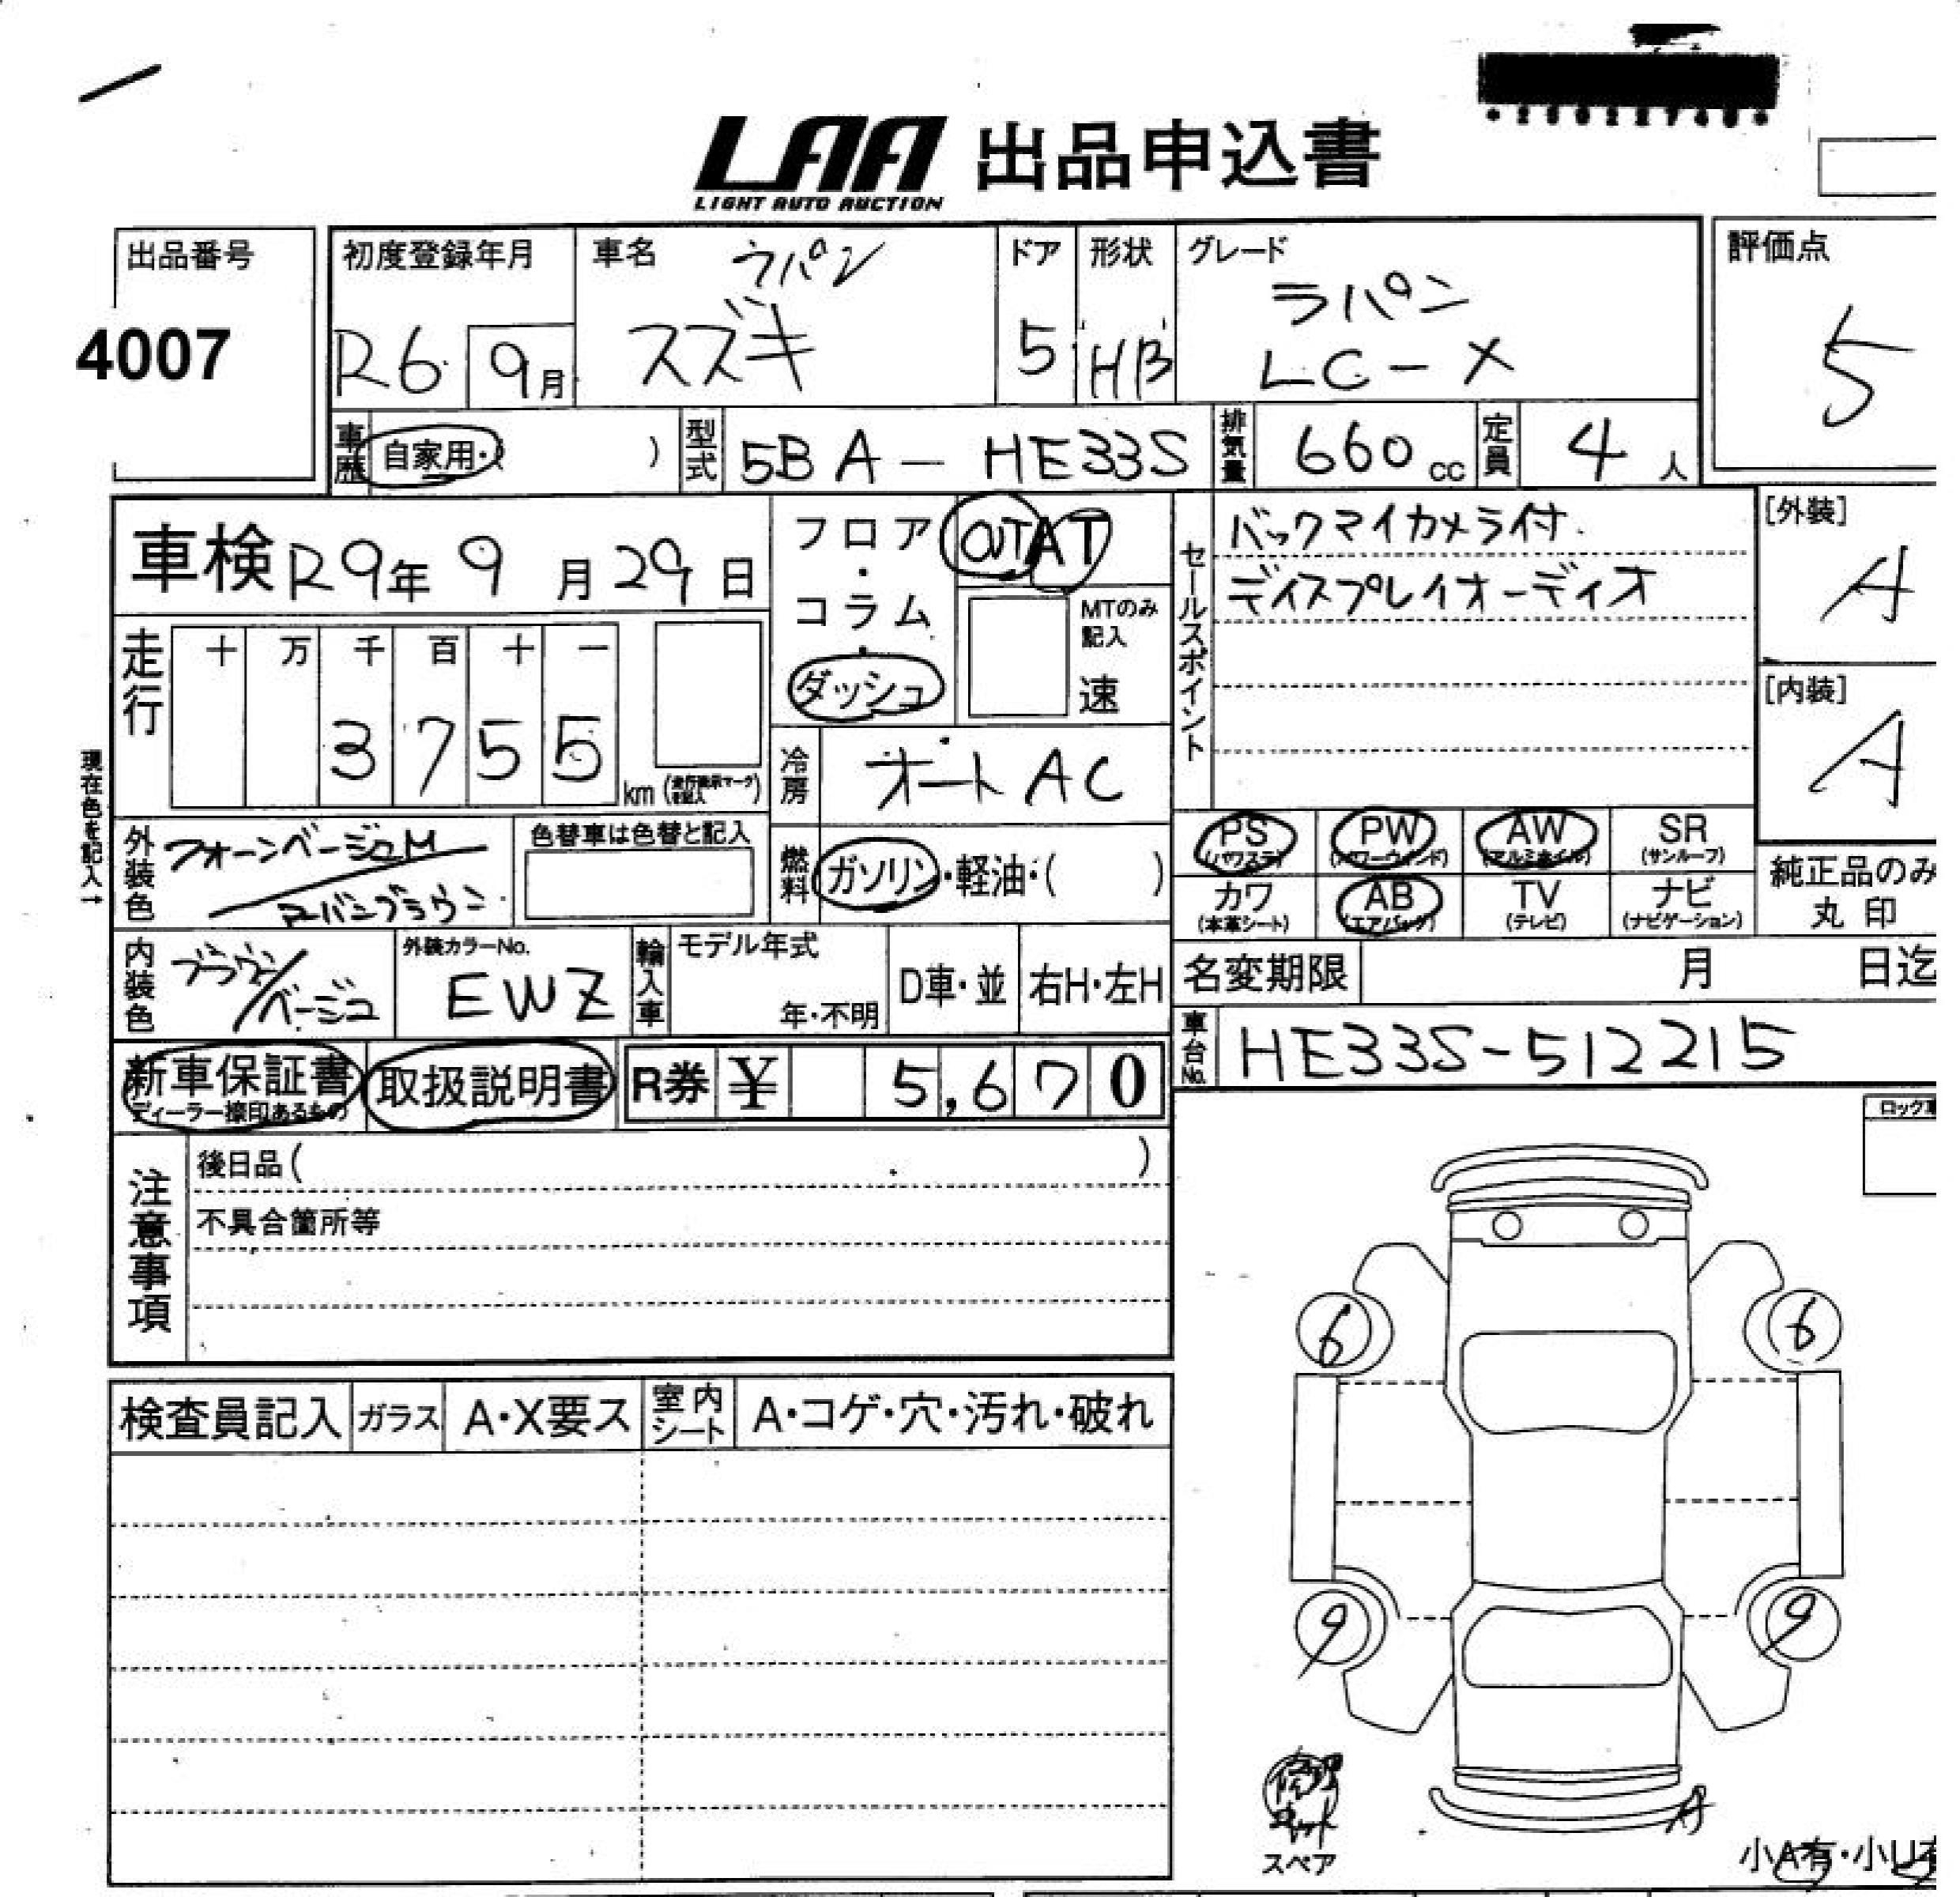 LAA 出品申込書
LIGHT AUTO AUCTION
出品番号
4007
初度登録年月
R6 9月
車名 ラパン
スズキ
ドア
5
形状
HB
グレード
ラパン
LC-X
評価点
5
車歴 自家用・( )
型式 5BA-HE33S
排気量 660cc
定員 4人
車検 R9年9月29日
フロア・コラム・ダッシュ
OUT AT
MTのみ記入
速
セールスポイント
バックマイカメラ付
ディスプレイオーディオ
[外装]
A
[内装]
A
走行
十 万 千 百 十 一
3 7 5 5 km
(走行表示マークを記入)
現在色を記入→
冷房 オートAC
外装色 フォーンベージュM
アーバンブラウン
色替車は色替と記入
燃料 ガソリン・軽油・( )
PS (パワステ)
PW (パワーウィンド)
AW (アルミホイル)
SR (サンルーフ)
カワ (本革シート)
AB (エアバッグ)
TV (テレビ)
ナビ (ナビゲーション)
純正品のみ
丸印
内装色 ブラウン/ベージュ
外装カラーNo.
EWZ
輸入車
モデル年式
年・不明
D車・並
右H・左H
名変期限 月 日迄
車台No. HE33S-512215
新車保証書
ディーラー捺印あるもの
取扱説明書
R券 ¥ 5,670
注意事項
後日品( )
不具合箇所等
検査員記入
ガラス
A・X要ス
室内シート
A・コゲ・穴・汚れ・破れ
6 6
9 9
A
スペア
小A有・小U